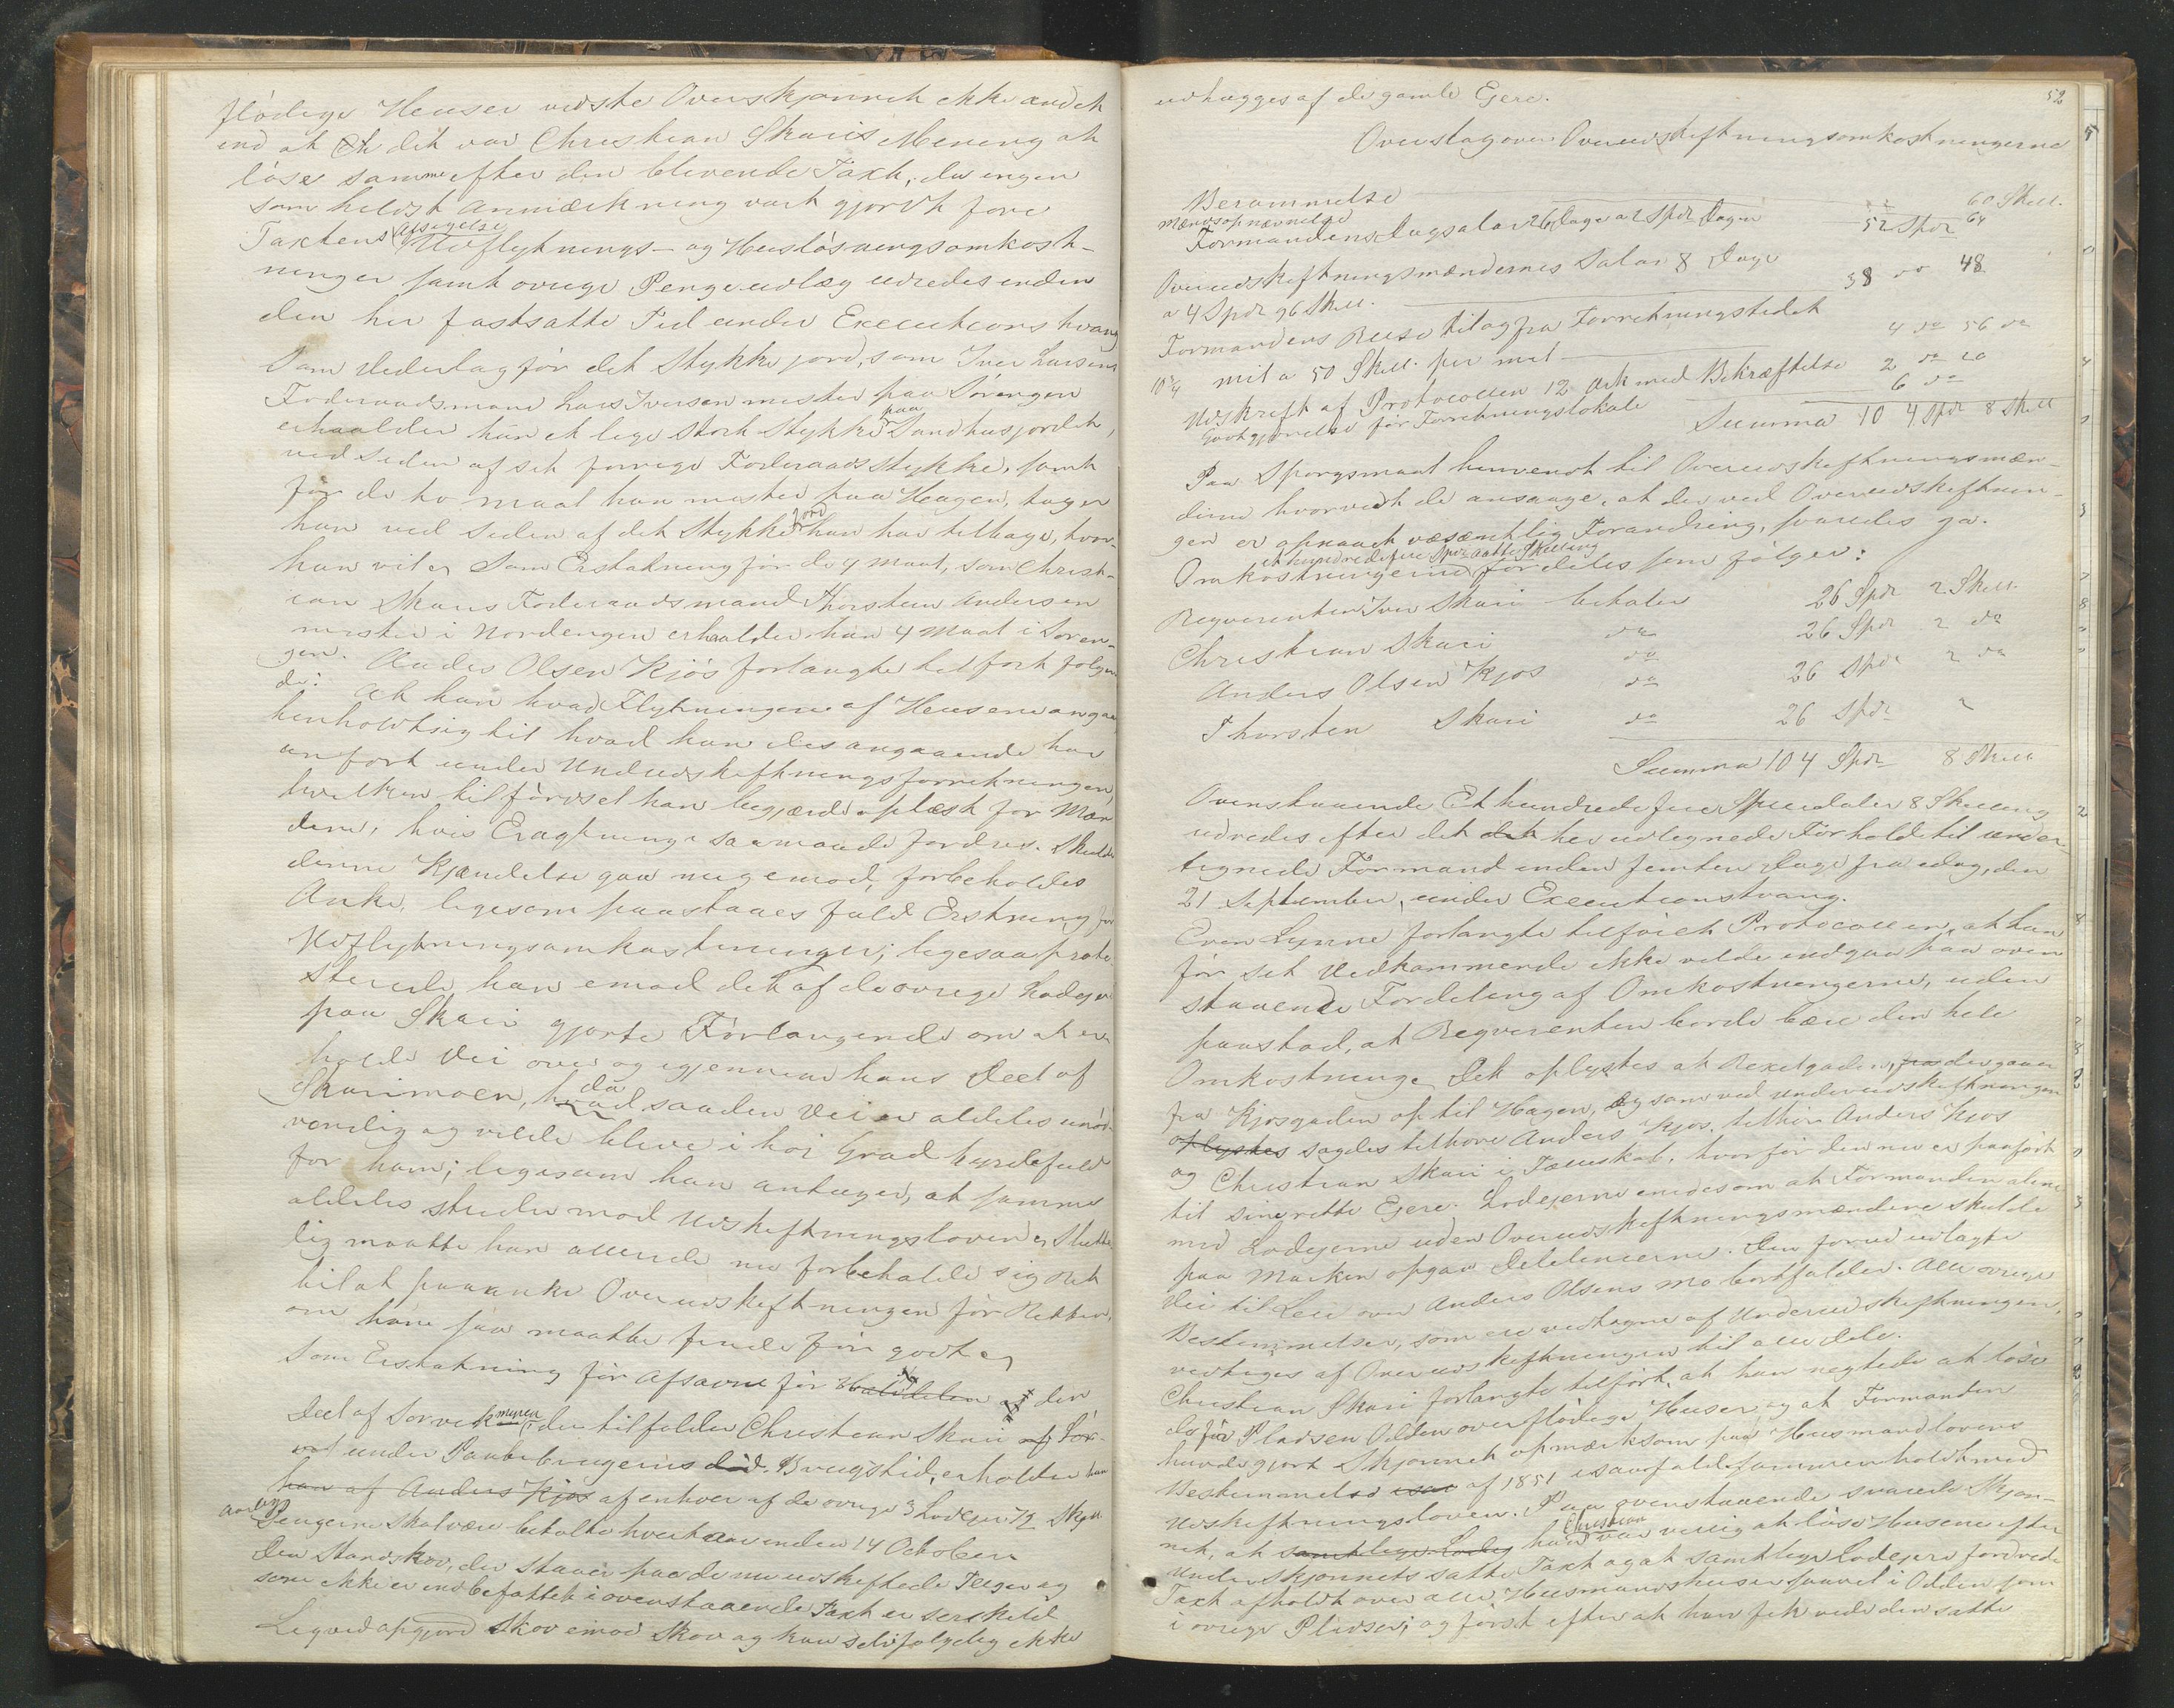 flödige Huuser vidste Overskjönnet ikke andet
end at det var Christian Skaris Mening at
löse samme efter den blivende Taxt, da ingen
som heldst Anmærkning vart gjordt före
Taxtens Afsigelse Udflytnings- og Huuslösningsomkost-
ninger samt övrige Penge udlæg udredes inden
den her fastsatte Tid under Executionstvang
Som Vederlag för det Stykke jord, som Iver Larsens
Föderaadsmand Lars Iversen mister paa Sörengen
erhaalder han et lige stort Stykke paa Sandhusjordet,
ved Siden af sit forrige Föderaadsstykke, samt
för de to maal han mister paa Haugen, tager
han ved Siden af det Stykke jord han har tilbage, hvor
han vil. Som Erstatning för de 4 maal, som Christ-
ian Skaris Föderaadsmand Thorsten Andersen
mister i Nordengen erhaalder han 4 Maal i Sören-
gen. Anders Olsen Kjös forlangte tilfört følgen
de: At han hvad Flytningen af Huusene angaa
henholdt sig til hvad han desangaaende har
anført under Underudskiftningsforretningen,
hvilken tilførdsel han begjærede oplæst for Mæn
dene, hvis Eragtning saamande fordres. Skulde
denne Kjændelse gaa mig emod, forbeholdes
Anke, ligesom paastaaes fuld Erstning för
Udflytningsomkostninger; ligesaa prote-
sterede han emod det af de övrige Lodejer
paa Skari gjorte Förlangende om at er
holde Vei over og igjennem hans Deel af
Skarimoen, da saadan Vei er aldeles unöd-
vendig og vilde blive i høi Grad byrdefuld
for ham; ligesom han antager, at samme
aldeles strider mod Udskiftningsloven. Slutte
lig maatte han allerede nu forbeholde sig Ret
til at paaanke Overudskiftningen för Retten,
om han saa maatte finde för godt.
Som Erstatning för Afsavn for den
Deel af Sorvekmyren, der tilfalder Christian Skari
under Paabobrugerens Brugstid, erholder han
han af Anders Kjös af enhver af de övrige 3 Lodejer 72 Skill
aarlig Pengene skal være betalte hvert Aar inden 14 October
den Standskov, der staaer paa de nu udskiftede Teiger og
som ikke er indbefattet i ovenstaaende Taxt er serskildt
Ligved afgjord Skov emod Skov og kan selvfølgelig ikke
udhugges af de gamle Ejere.
52
Overslag over Overudskiftningsomkostningerne
Berammelse 60 Skill.
Mændsopnævnelse 64
Formandens Dagsalar 26 Dage a 2 Spdr Dagen 52 Spdr
Overudskiftningsmændenes Salar 8 Dage
a 4 Spdr 96 Skill. 38 do 48
Formandens Reise til og fra Forretningstedet
10 3/4 mil a 50 Skill. per mil 4 do 56 do
Udskrift af Protocollen 12 Ark med Bekræftelse 2 do 20
Godtgjørelse för Forretningslokale 6 do
Summa 104 Spdr 8 Skill
Paa Spørgsmaal henvendt til Overudskiftningsmæn-
dene hvorvidt de ansaage, at der ved Overudskiftnin-
gen er opnaaet væsentlig Forandring, svaredes ja.
et hundrede fire Spdr aatte Skilling
Omkostningerne fordeles som følger:
Reqvirenten Iver Skari betaler 26 Spdr 2 Skill.
Christian Skari do 26 Spdr 2 do
Anders Olsen Kjos do 26 Spdr 2 do
Thorsten Skari do 26 Spdr 2
Summa 104 Spdr 8 Skill
Ovenstaaende Et hundrede fire Speciedaler 8 Skilling
udredes efter det det her udlignede Forhold til under-
tegnede Formand inden femten Dage fra idag, den
21 September, under Executionstvang.
Even Lynne forlangte tilføiet Protocollen, at han
för sit Vedkommende ikke vilde indgaa paa oven
staaende Fordeling af Omkostningerne, uden
paastod, at Reqvirenten borde bære den hele
Omkostninge. Det oplystes at Rexelgaden, der gaaer
fra Kjosgaden op til Hagen, og som ved underudskiftningen
oplystes sagdes tilhøre Anders Kjos, tilhör Anders Kjos
og Christian Skari i Fælleskab, hvorför den nu er paafört
til sine rette Ejere. Lodejerne enedes om at Formanden alene
med Lodejerne uden Overudskiftningsmændene skulde
paa Marken opgaa Delelinierne. Den forud udlagte
Vei til Leie over Anders Olsens Mo bortfalder. Alle övrige
Bestemmelser, som ere vedtagne af Underudskiftningen,
vedtages af Overudskiftningen til alle dele.
Christian Skari forlangte tilført, at han negtede at löse
de för Pladsen Odden overflödige Huuser og at Formanden
havde gjort Skjönnet opmærksom paa Husmandlovens
Bestemmelse af 1851 isaafald sammenholdt med
Udskiftningsloven. Paa ovenstaaende svarede Skjön-
net, at samtlige Lodej Christian var villig at löse Husene efter
Underskjönnets satte Taxt og at samtlige Lodejere fordrede
Taxt afholdt over alle Huusmandshuuser saavel i Odden som
i övrige Pladser; og först efter at han fik vide den satte